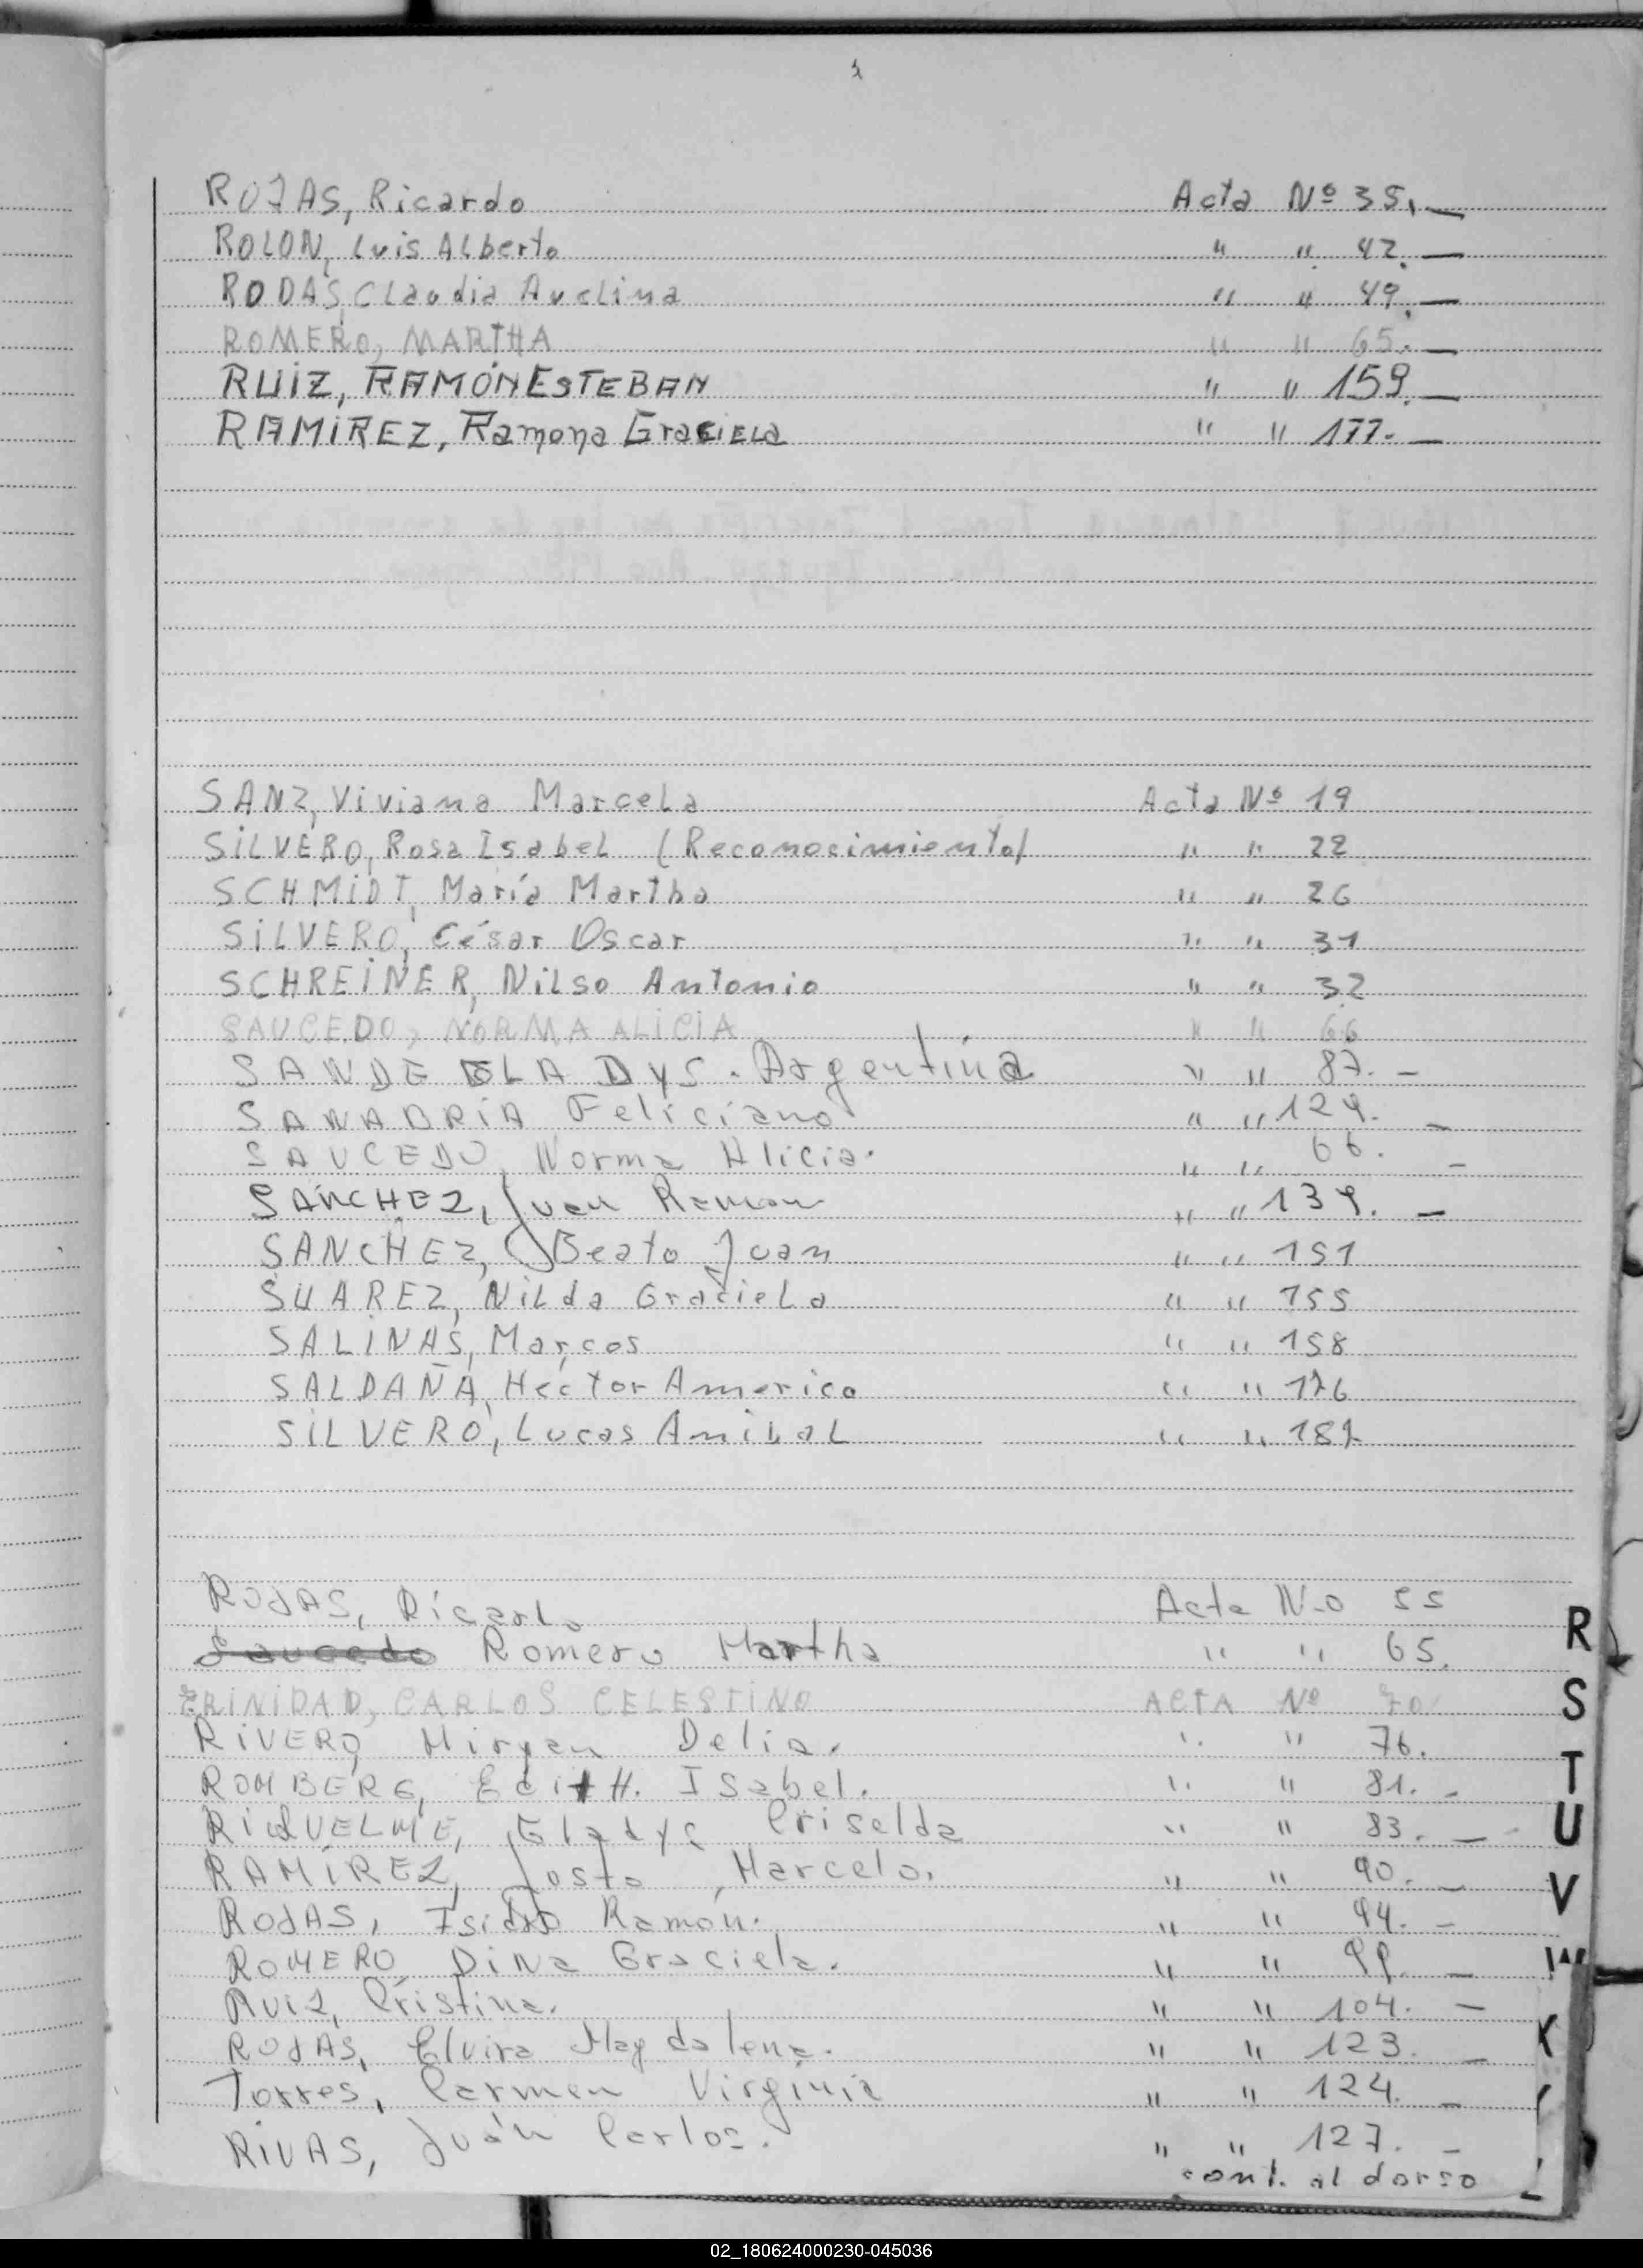 ROJAS, Ricardo Acta Nº 35.—
ROLON, Luis Alberto " " 42.—
RODAS, Claudia Avelina " " 49.—
ROMERO, MARTHA " " 65.—
RUIZ, RAMÓN ESTEBAN " " 159.—
RAMIREZ, Ramona GraCIELA " " 177.—
SANZ, Viviana Marcela Acta Nº 19
SILVERO, Rosa Isabel (Reconocimiento) " " 22
SCHMIDT, María Martha " " 26
SILVERO, César Oscar " " 31
SCHREINER, Nilso Antonio " " 32
SAUCEDO, NORMA ALICIA " " 66
SANDE GLADYS. Argentina " " 87.—
SANABRIA Feliciano " " 129.—
SAUCEDO, Norma Alicia. " " 66.—
SANCHEZ, Juan Ramon " " 139.—
SANCHEZ, Beato Juan " " 151
SUAREZ, Nilda Graciela " " 155
SALINAS, Marcos " " 158
SALDAÑA, Hector Americo " " 176
SILVERO, Lucas Anibal " " 182
ROJAS, Ricardo Acta N-o 55
Saucedo Romero Martha " " 65.
TRINIDAD, CARLOS CELESTINO ACTA Nº 70
RIVERO, Miryan Delia. " " 76.
ROMBERG, Edith. Isabel. " " 81.-
RIQUELME, Gladys Criselda " " 83.—
RAMÍREZ, Justo Marcelo. " " 90.—
ROJAS, Isidro Ramón. " " 94.—
ROMERO Dina Graciela. " " 99.—
RUIZ, Cristina. " " 104.—
ROJAS, Elvira Magdalena. " " 123.—
Torres, Carmen Virginia " " 124.—
RIVAS, Juán Carlos. " " 127.—
cont. al dorso
R
S
T
U
V
W
02_180624000230-045036